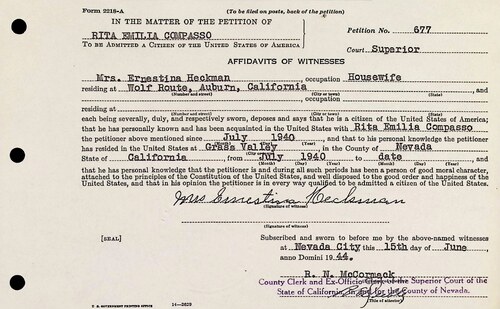 Form 2218-A (To be filed on posts, back of the petition)
IN THE MATTER OF THE PETITION OF
RITA EMILIA COMPASSO
TO BE ADMITTED A CITIZEN OF THE UNITED STATES OF AMERICA
Petition No. 677
Court Superior
AFFIDAVITS OF WITNESSES
Mrs. Ernestina Heckman, occupation Housewife
residing at Wolf Route, Auburn, California
(Number and street) (City or town) (State)
, occupation
residing at
(Number and street) (City or town) (State)
each being severally, duly, and respectively sworn, deposes and says that he is a citizen of the United States of America;
that he has personally known and has been acquainted in the United States with Rita Emilia Compasso
the petitioner above mentioned since July 1940, and that to his personal knowledge the petitioner
(Month) (Year)
has resided in the United States at Grass Valley, in the County of Nevada
(City or town)
State of California, from July 1940 to date, and
(Month) (Day) (Year) (Month) (Day) (Year)
that he has personal knowledge that the petitioner is and during all such periods has been a person of good moral character,
attached to the principles of the Constitution of the United States, and well disposed to the good order and happiness of the
United States, and that in his opinion the petitioner is in every way qualified to be admitted a citizen of the United States.
Mrs Ernestina Heckman
(Signature of witness)
(Signature of witness)
[SEAL]
Subscribed and sworn to before me by the above-named witnesses
at Nevada City this 15th day of June,
anno Domini 1944.
R. N. McCormack
County Clerk and Ex-Officio Clerk of the Superior Court of the
State of California, in and for the County of Nevada.
(Title of officer)
U. S. GOVERNMENT PRINTING OFFICE 14-2629